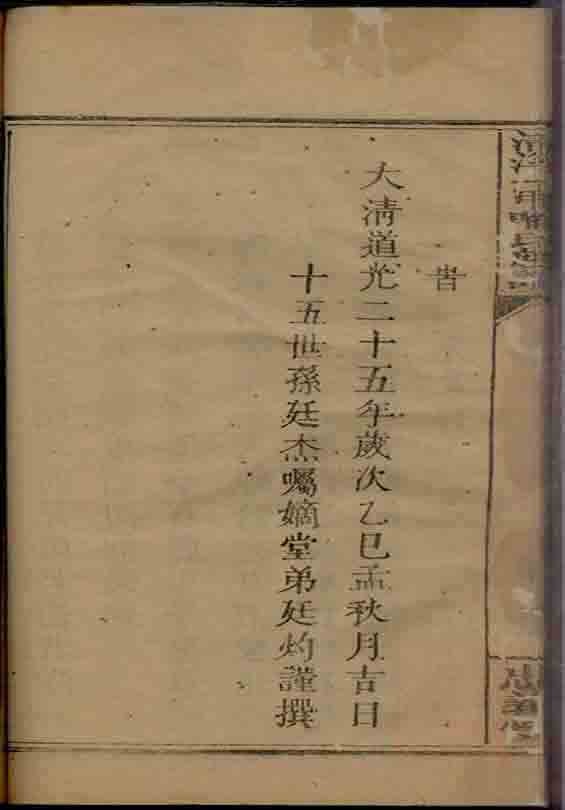 時
大清道光二十五年歲次乙巳孟秋月吉日
十五世孫廷杰囑嫡堂弟廷灼謹撰